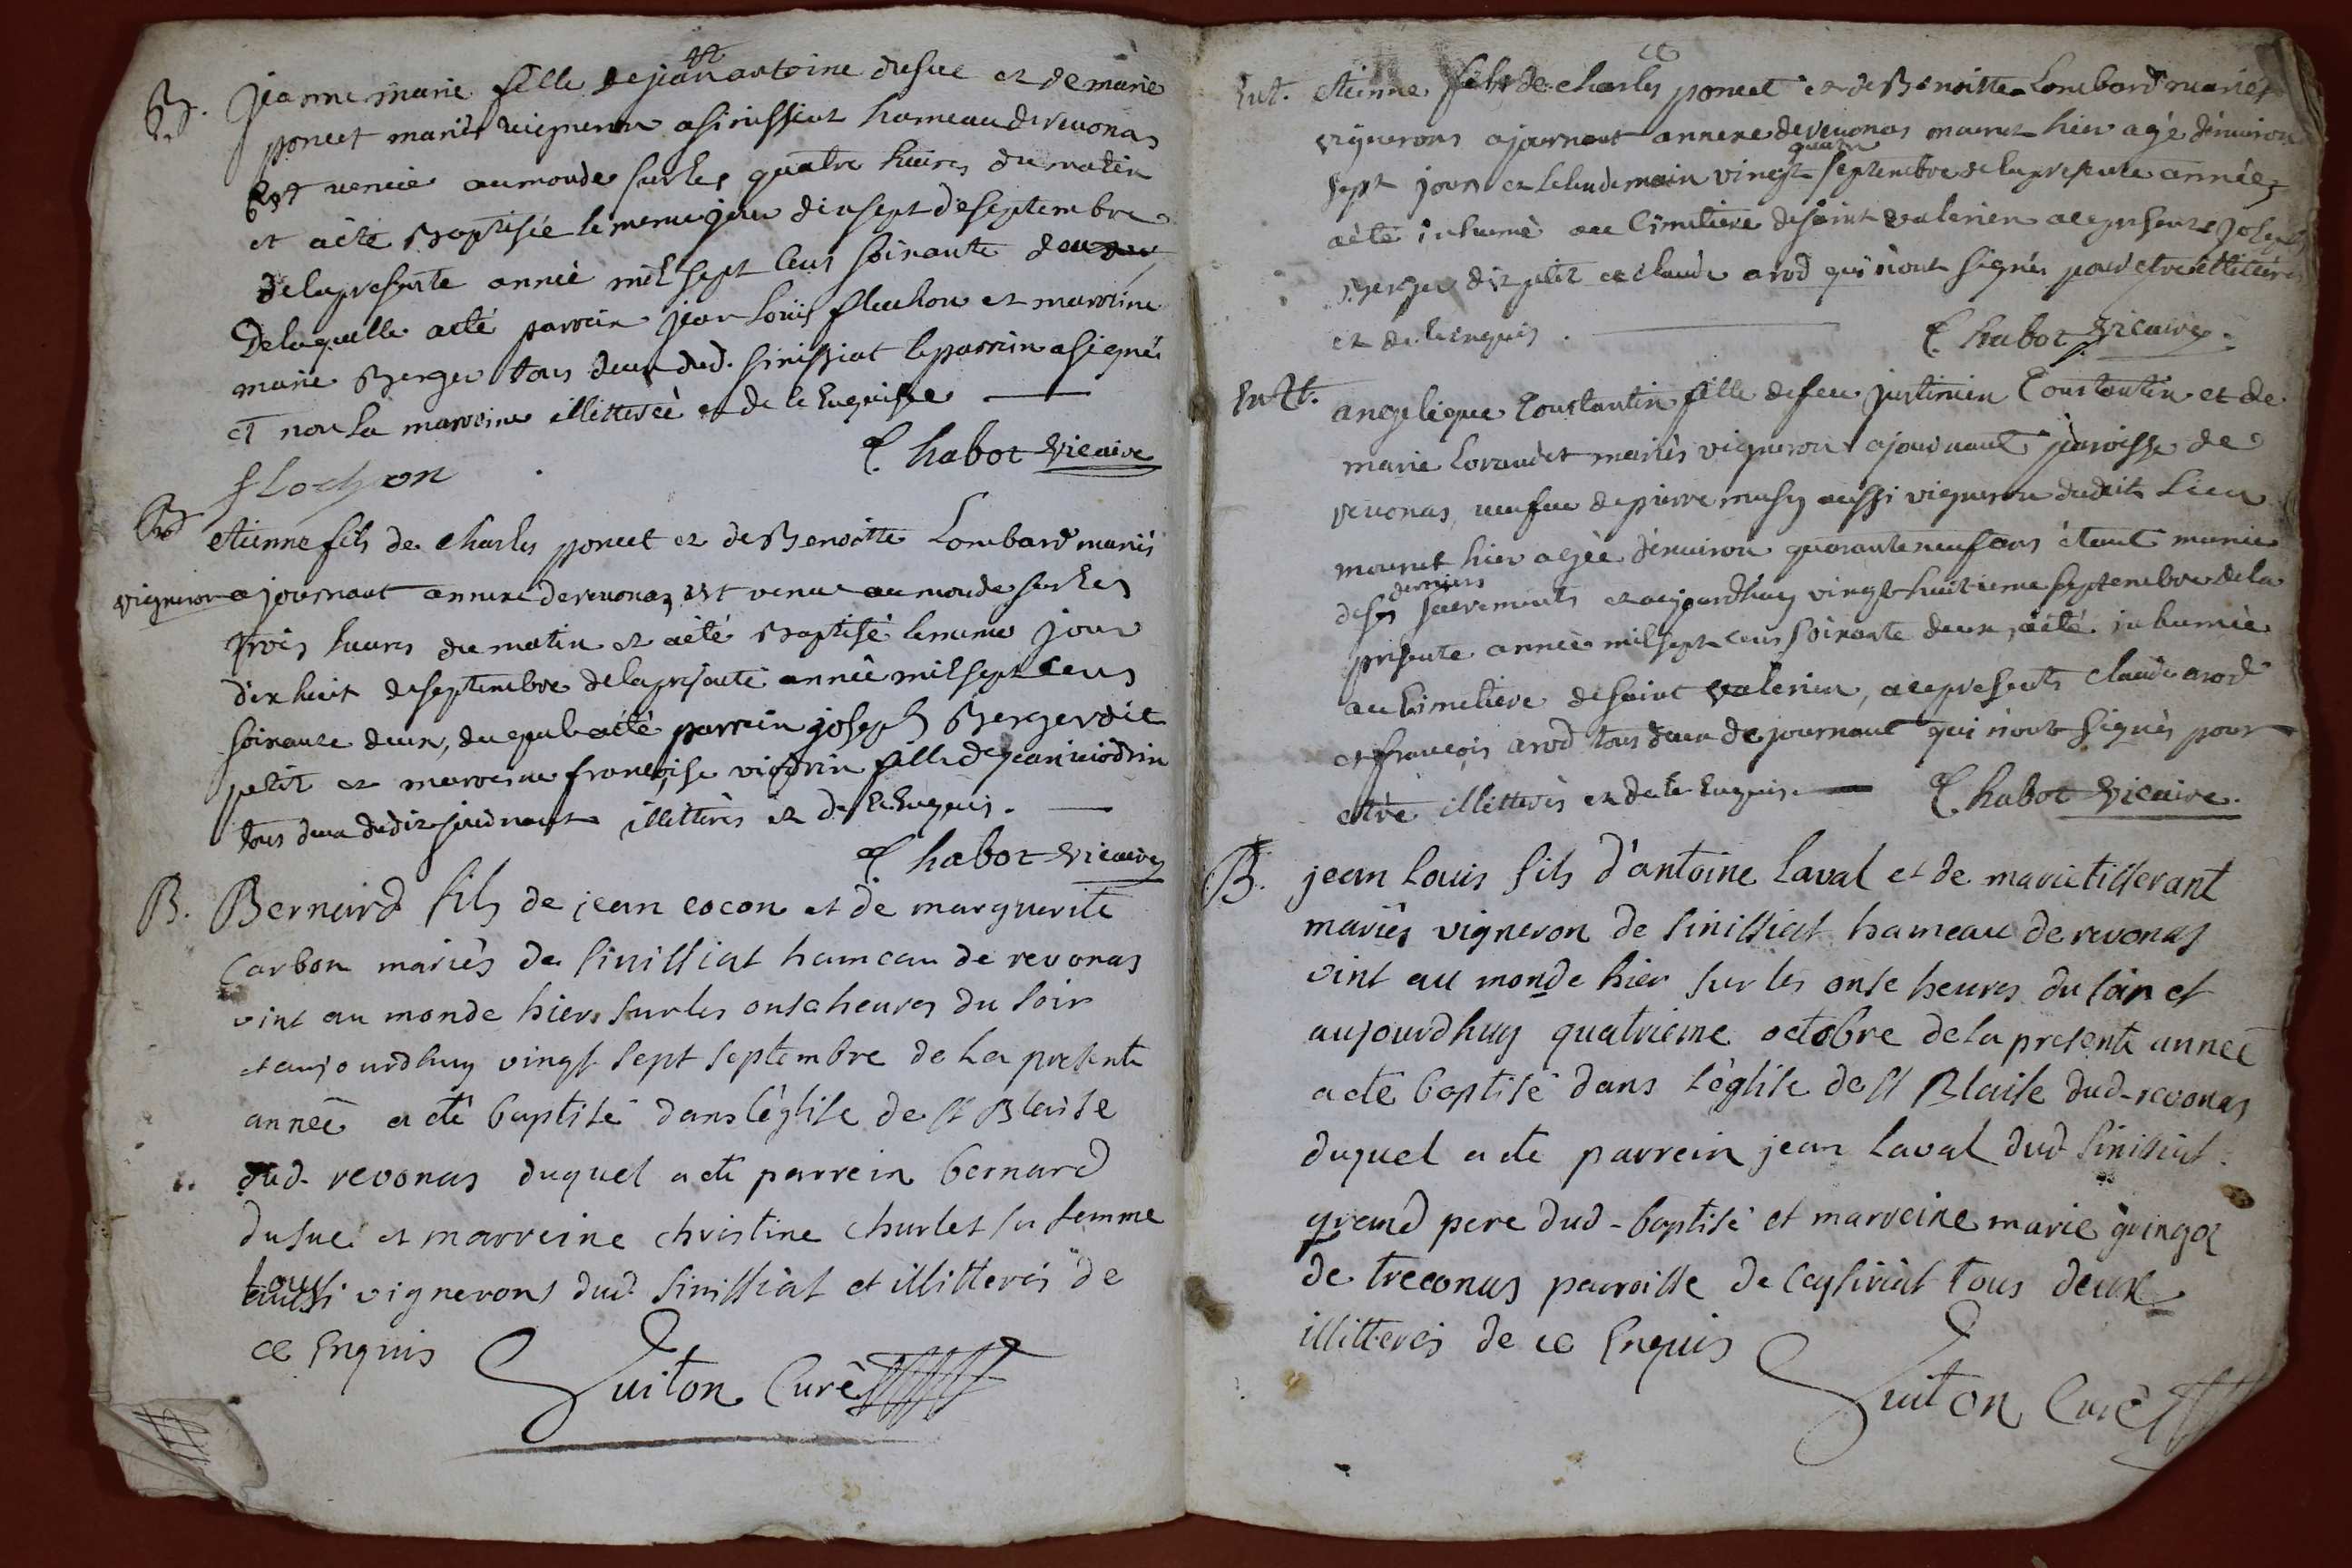 B. jeanne marie fille de jean antoine dusuc et de marie
poncet mariés vigneron a sinissiat hameau de revonas
est venüe au monde sur les quatre heures du matin
et a été baptisée le meme jour dix sept de septembre
de la presente année mil sept cens soixante deux
de laquelle a été parrein jean Loüis flochon et marreine
marie Berger tous deux dud. sinissiat le parrein a signé
et non la marreine illitterée et de ce Enquise
Chabot vicaire
flochon
B etienne fils de charles poncet et de Benoitte Lombard mariés
vigneron a journant annexe de revonas est venu au monde sur les
trois heures du matin et a été baptisé le meme jour
dix huit de septembre de la presente année mil sept cens
soixante deux, du quel a été parrein joseph Berger dit
petit et marreine françoise viodrin fille de jean viodrin
tous deux dudit journant illitterés et de ce Enquis.
Chabot vicaire
B. Bernard fils de jean cocon et de marguerite
Carbon mariés de sinissiat hameau de revonas
vint au monde hier sur les onse heures du soir
et aujourdhuy vingt sept septembre de la presente
année a eté baptisé dans l'église de st Blaise
dud. revonas duquel a eté parrein bernard
dusuc et marreine christine churlet sa femme
tous vignerons dud sinissiat et illitterés de
ce Enquis
Guiton Curé
Ent. etienne fils de charles poncet et de Benoitte Lombard mariés
vignerons a journant annexe de revonas mourut hier agé d'environ
sept jours et le lendemain vingt quatre septembre de la presente année
a été inhumé au cimetiere de saint valerien a ce presents joseph
Berger dit petit et claude arod qui n'ont signés pour etre illitterés
et de ce enquis.
Chabot vicaire.
Entt. angelique Constantin fille de feu justinien Constantin et de
marie Lorandet mariés vigneron a journant paroisse de
revonas, veufve de pierre musy aussi vigneron dudit Lieu
mourut hier agée d'environ quarante neuf ans étant munie
des derniers sacrements et aujourdhuy vingt huitieme septembre de la
presente année mil sept cens soixante deux, a été inhumée
au cimetiere de saint valerien, a ce presents claude arod
et françois arod tous deux de journant qui n'ont signés pour
etre illitterés et de ce Enquis. Chabot vicaire.
B. jean Louis fils d'antoine Laval et de marie tisserant
mariés vigneron de sinissiat hameau de revonas
vint au monde hier sur les onse heures du soir et
aujourdhuy quatrieme octobre de la presente année
a eté baptisé dans l'église de st Blaise dud. revonas
duquel a eté parrein jean Laval dud sinissiat
grand pere dud. baptisé et marreine marie
de treconas parroisse de Ceysiriat tous deux
illitterés de ce Enquis
Guiton Curé